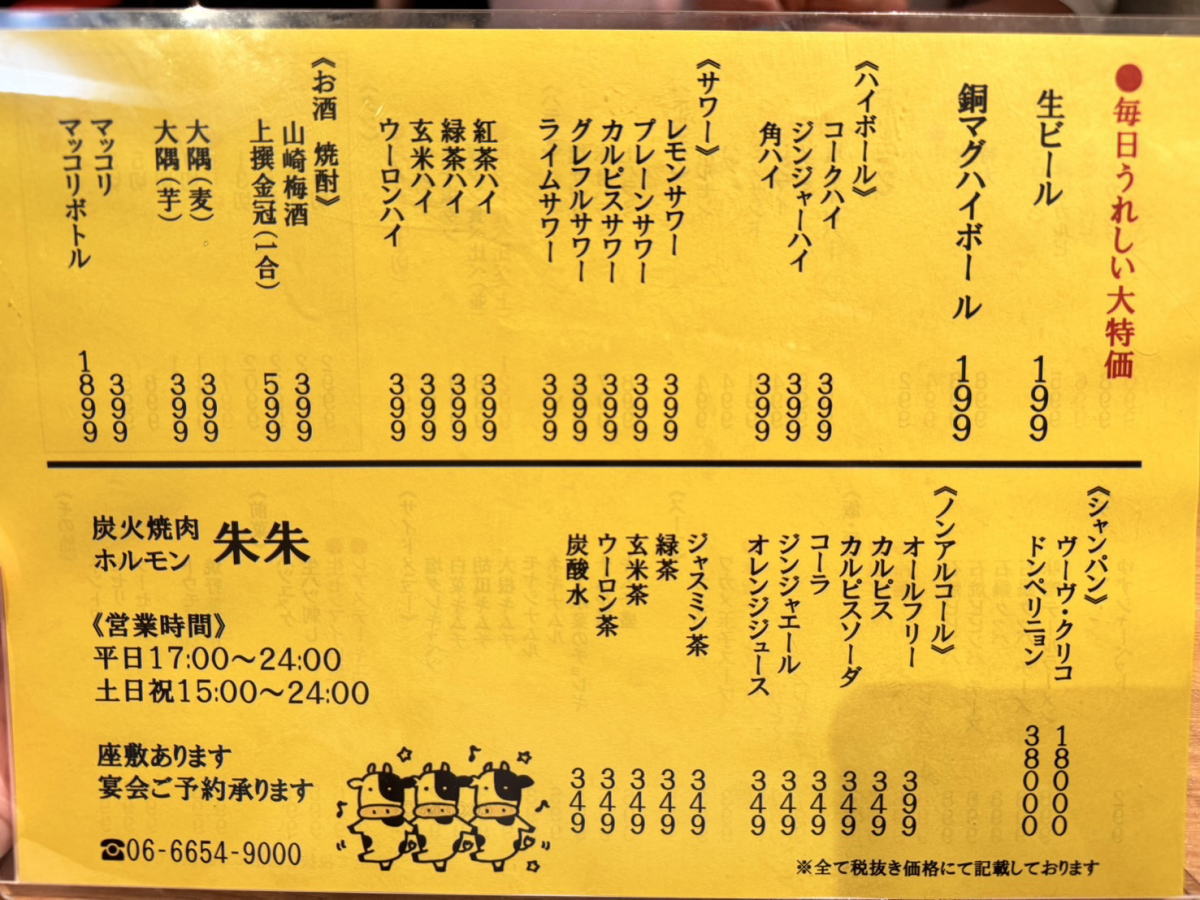 ●毎日うれしい大特価
生ビール 199
銅マグハイボール 199
《ハイボール》
コークハイ 399
ジンジャーハイ 399
角ハイ 399
《サワー》
レモンサワー 399
プレーンサワー 399
カルピスサワー 399
グレフルサワー 399
ライムサワー 399
紅茶ハイ 399
緑茶ハイ 399
玄米ハイ 399
ウーロンハイ 399
《お酒 焼酎》
山崎梅酒 399
上撰金冠(1合) 599
大隅(麦) 399
大隅(芋) 399
マッコリ 399
マッコリボトル 1899
《シャンパン》
ヴーヴ・クリコ 18000
ドンペリニョン 38000
《ノンアルコール》
オールフリー 399
カルピス 349
カルピスソーダ 349
コーラ 349
ジンジャエール 349
オレンジジュース 349
ジャスミン茶 349
緑茶 349
玄米茶 349
ウーロン茶 349
炭酸水 349
※全て税抜き価格にて記載しております
炭火焼肉
ホルモン 朱朱
《営業時間》
平日17:00～24:00
土日祝15:00～24:00
座敷あります
宴会ご予約承ります
☎06-6654-9000